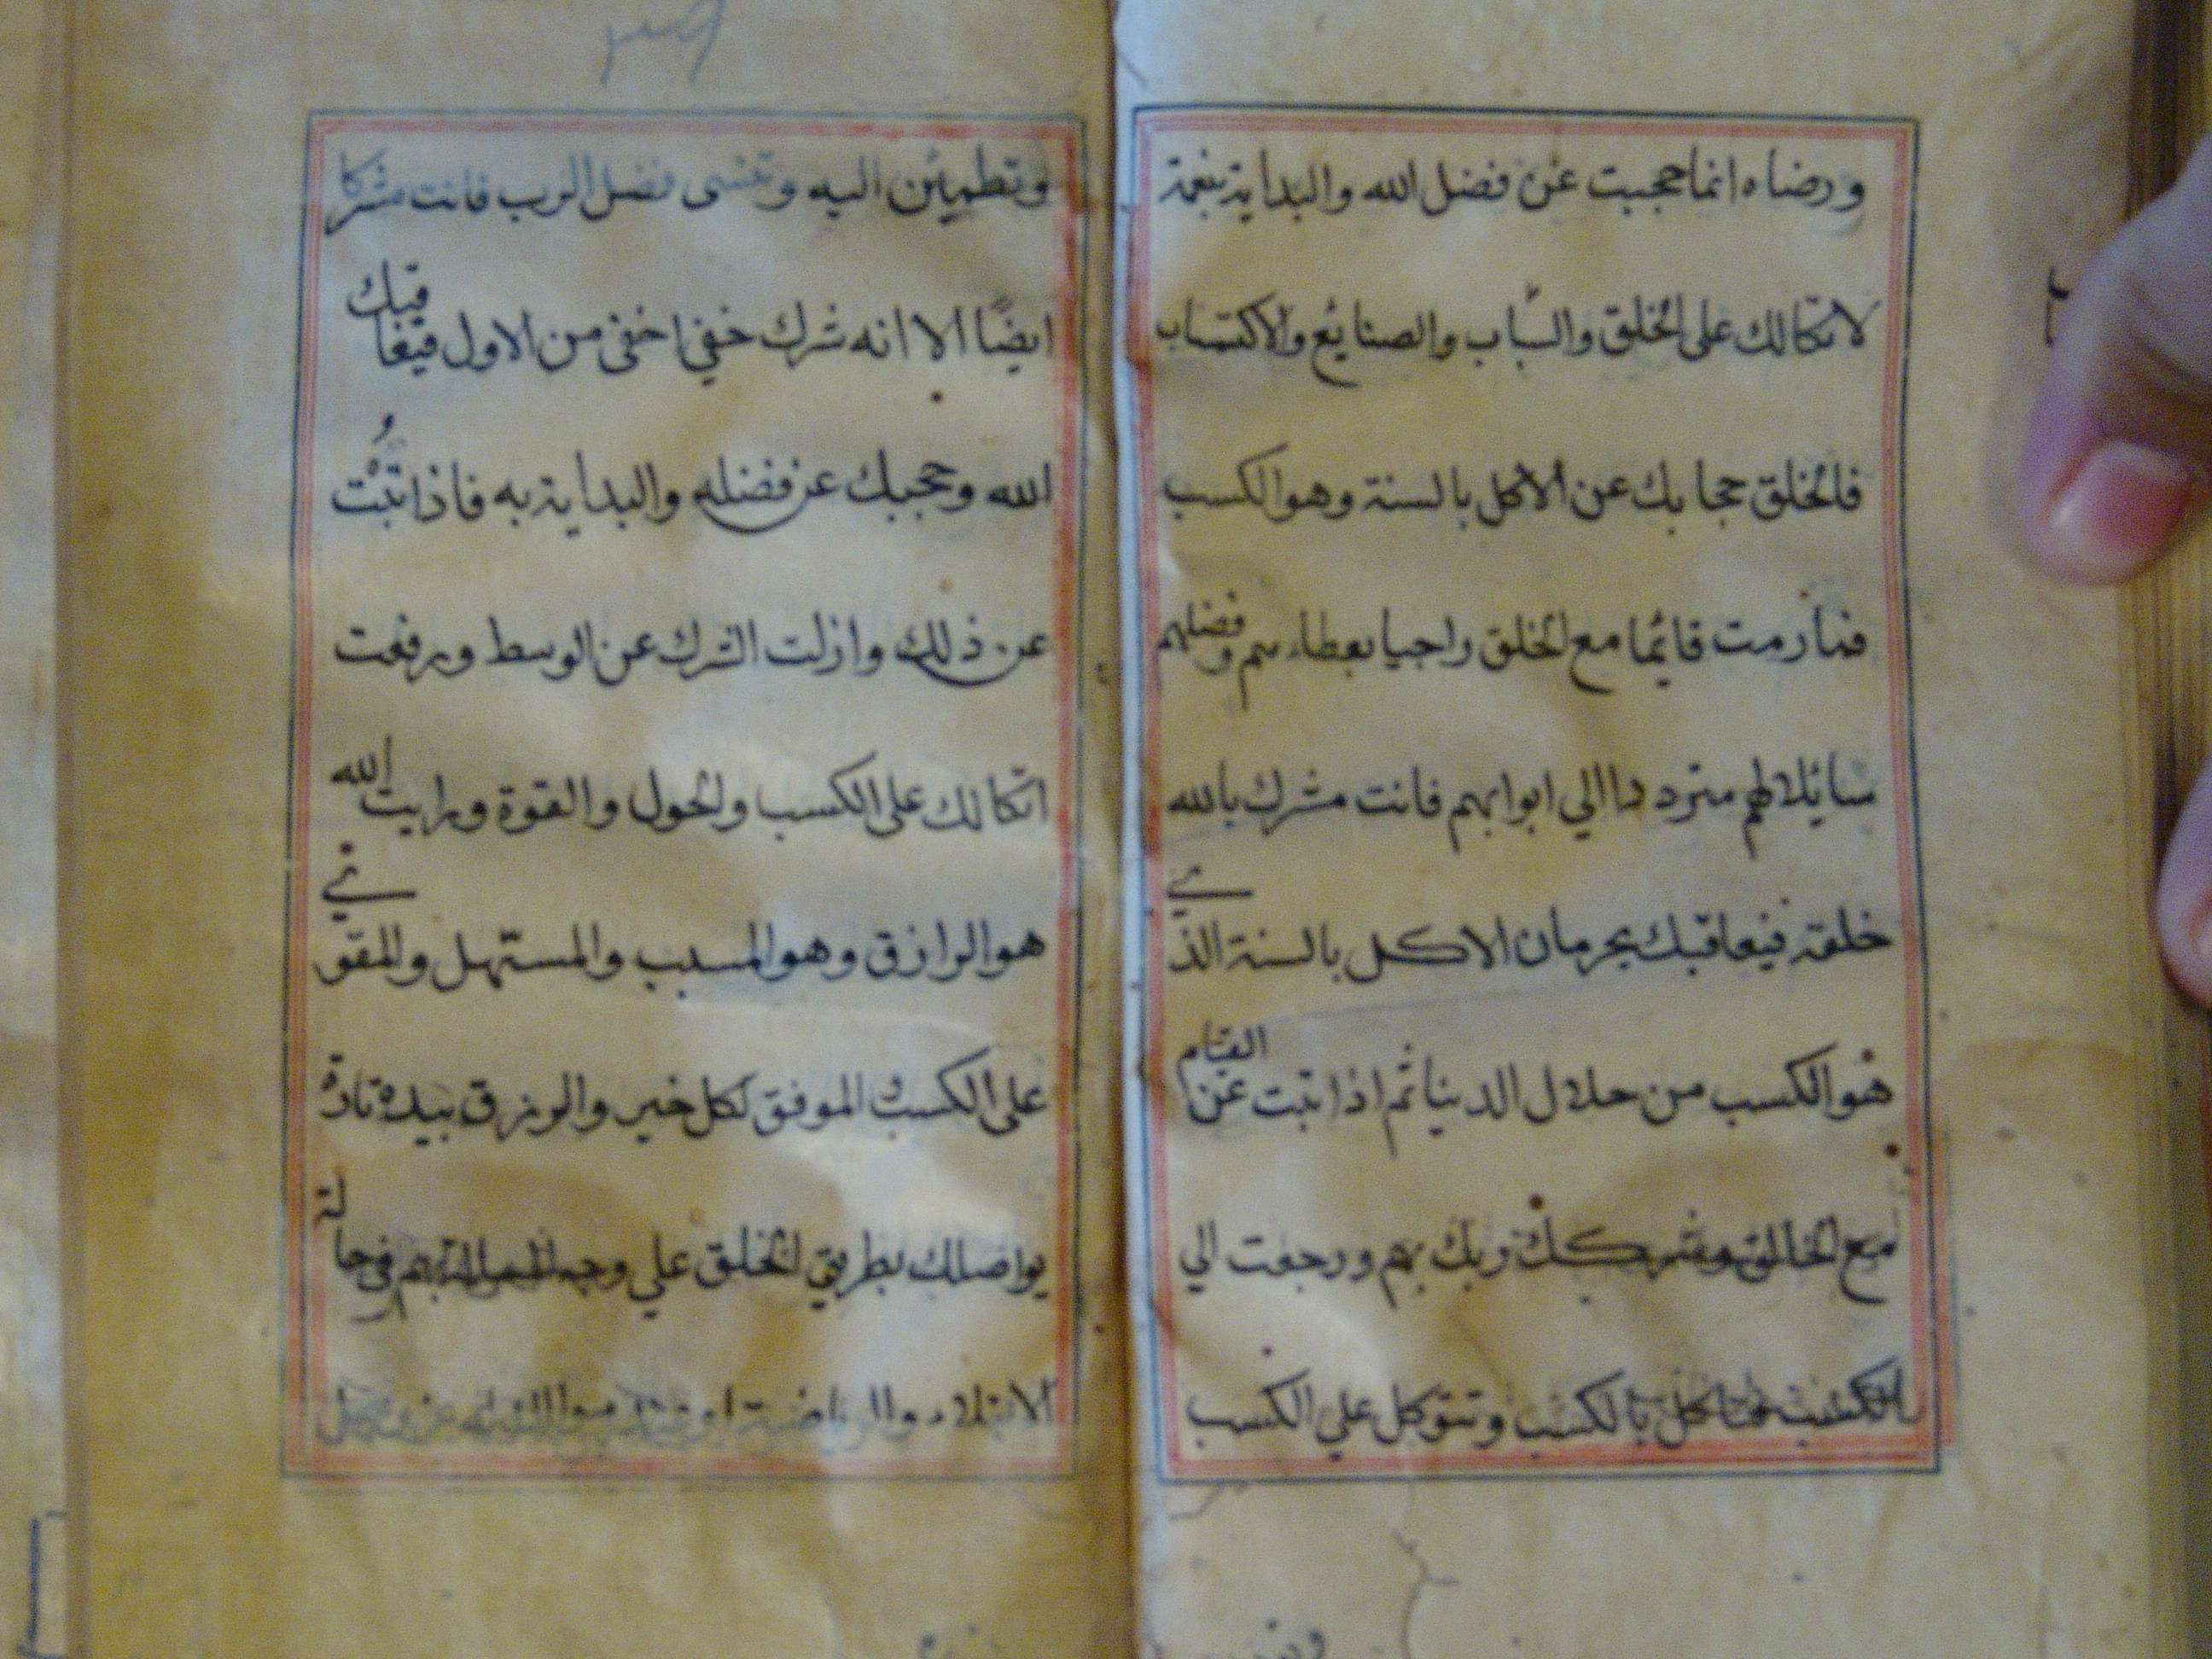 ورضاه انما حجبت عن فضل الله والبداية بنعمة
لاتكالك على الخلق والسباب والصنايع والاكتساب
فالخلق حجابك عن الاكل بالسنة وهو الكسب
فما زمت قائما مع الخلق راجيا بعطاءهم وفضلهم
سائلا لهم مترددا الي ابوابهم فانت مشرك بالله
خلقه فيعاقبك بحرمان الاكل بالسنة الذي
هو الكسب من حلال الدنيا ثم اذا تبت عن القيام
مع الخلق وشركك ربك بهم ورجعت الي
الكسب فتاكل بالكسب وتتوكل علي الكسب
وتطمئن اليه وتنسى فضل الرب فانت مشركا
ايضًا الا انه شرك خفي اخفى من الاول فيعاقبك
الله وحجبك عن فضله والبداية به فاذا تبت
عن ذلك وازلت الشرك عن الوسط ورفعت
اتكالك على الكسب والحول والقوة ورايت الله
هو الرازق وهو المسبب والمستهل والمقوي
على الكسب الموفق لكل خير والرزق بيده تارة
يواصلك بطريق الخلق علي وجه المسالة بهم في حالة
الابتلاء والرياضة او عند سوالك له عز وجل